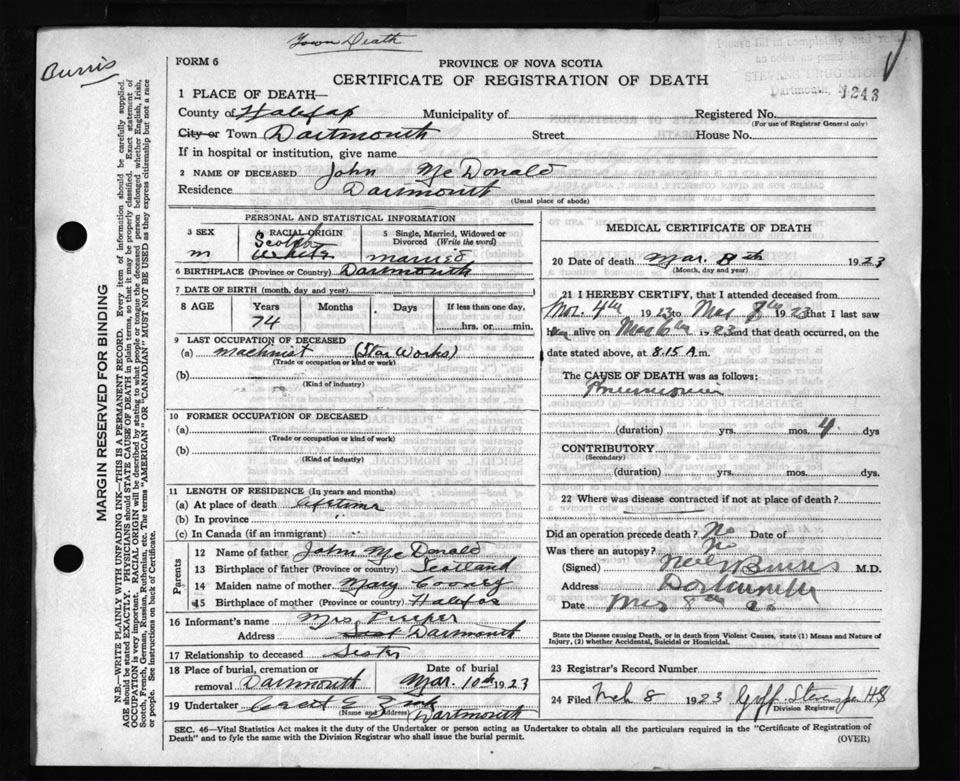 Town Death
Burris
Please fill in completely and
as soon as possible
Dartmouth, N.
1243
FORM 6
PROVINCE OF NOVA SCOTIA
CERTIFICATE OF REGISTRATION OF DEATH
1 PLACE OF DEATH—
County of Halifax Municipality of Registered No.
(For use of Registrar General only)
City or Town Dartmouth Street House No.
If in hospital or institution, give name
2 NAME OF DECEASED John McDonald
Residence Dartmouth
(Usual place of abode)
PERSONAL AND STATISTICAL INFORMATION
3 SEX
m
RACIAL ORIGIN
Scotch
White
5 Single, Married, Widowed or Divorced (Write the word)
married
6 BIRTHPLACE (Province or Country) Dartmouth
7 DATE OF BIRTH (month, day and year)
8 AGE Years Months Days If less than one day,
74 hrs. or min.
9 LAST OCCUPATION OF DECEASED
(a) machinist (Star Works)
(Trade or occupation or kind or work)
(b)
(Kind of industry)
10 FORMER OCCUPATION OF DECEASED
(a)
(Trade or occupation or kind of work)
(b)
(Kind of industry)
11 LENGTH OF RESIDENCE (In years and months)
(a) At place of death lifetime
(b) In province
(c) In Canada (if an immigrant)
Parents
12 Name of father John McDonald
13 Birthplace of father (Province or country) Scotland
14 Maiden name of mother Mary Cooney
15 Birthplace of mother (Province or country) Halifax
16 Informant's name Mrs
Address East Dartmouth
17 Relationship to deceased Sister
18 Place of burial, cremation or removal Dartmouth
Date of burial
Mar. 10th 1923
19 Undertaker
(Name and Address) Dartmouth
MEDICAL CERTIFICATE OF DEATH
20 Date of death Mar. 8th 1923
(Month, day and year)
21 I HEREBY CERTIFY, that I attended deceased from
Mar. 4th 1923 to Mar 8th 1923 that I last saw
him alive on Mar 1923 and that death occurred, on the
date stated above, at 8.15 A.m.
The CAUSE OF DEATH was as follows:
Pneumonia
(duration) yrs. mos. 4 dys
CONTRIBUTORY
(Secondary)
(duration) yrs. mos. dys.
22 Where was disease contracted if not at place of death?
Did an operation precede death? No Date of
Was there an autopsy? No
(Signed) Burris M.D.
Address Dartmouth
Date Mar 8th
State the Disease causing Death, or in death from Violent Causes, state (1) Means and Nature of Injury, (3) whether Accidental, Suicidal or Homicidal.
23 Registrar's Record Number
24 Filed Mch 8 1923
Division Registrar
SEC. 46—Vital Statistics Act makes it the duty of the Undertaker or person acting as Undertaker to obtain all the particulars required in the "Certificate of Registration of
Death" and to fyle the same with the Division Registrar who shall issue the burial permit.
(OVER)
MARGIN RESERVED FOR BINDING
N.B.—WRITE PLAINLY WITH UNFADING INK—THIS IS A PERMANENT RECORD. Every item of information should be carefully supplied.
AGE should be stated EXACTLY. PHYSICIANS should STATE CAUSE OF DEATH in plain terms, so that it may be properly classified. Exact statement of
OCCUPATION is very important. RACIAL ORIGIN will be described by stating to what people or tongue the deceased person belonged whether English, Irish,
Scotch, French, German, Russian, Ruthenian, etc. The terms "AMERICAN" or "CANADIAN" MUST NOT BE USED as they express citizenship but not a race
or people. See instructions on back of Certificate.